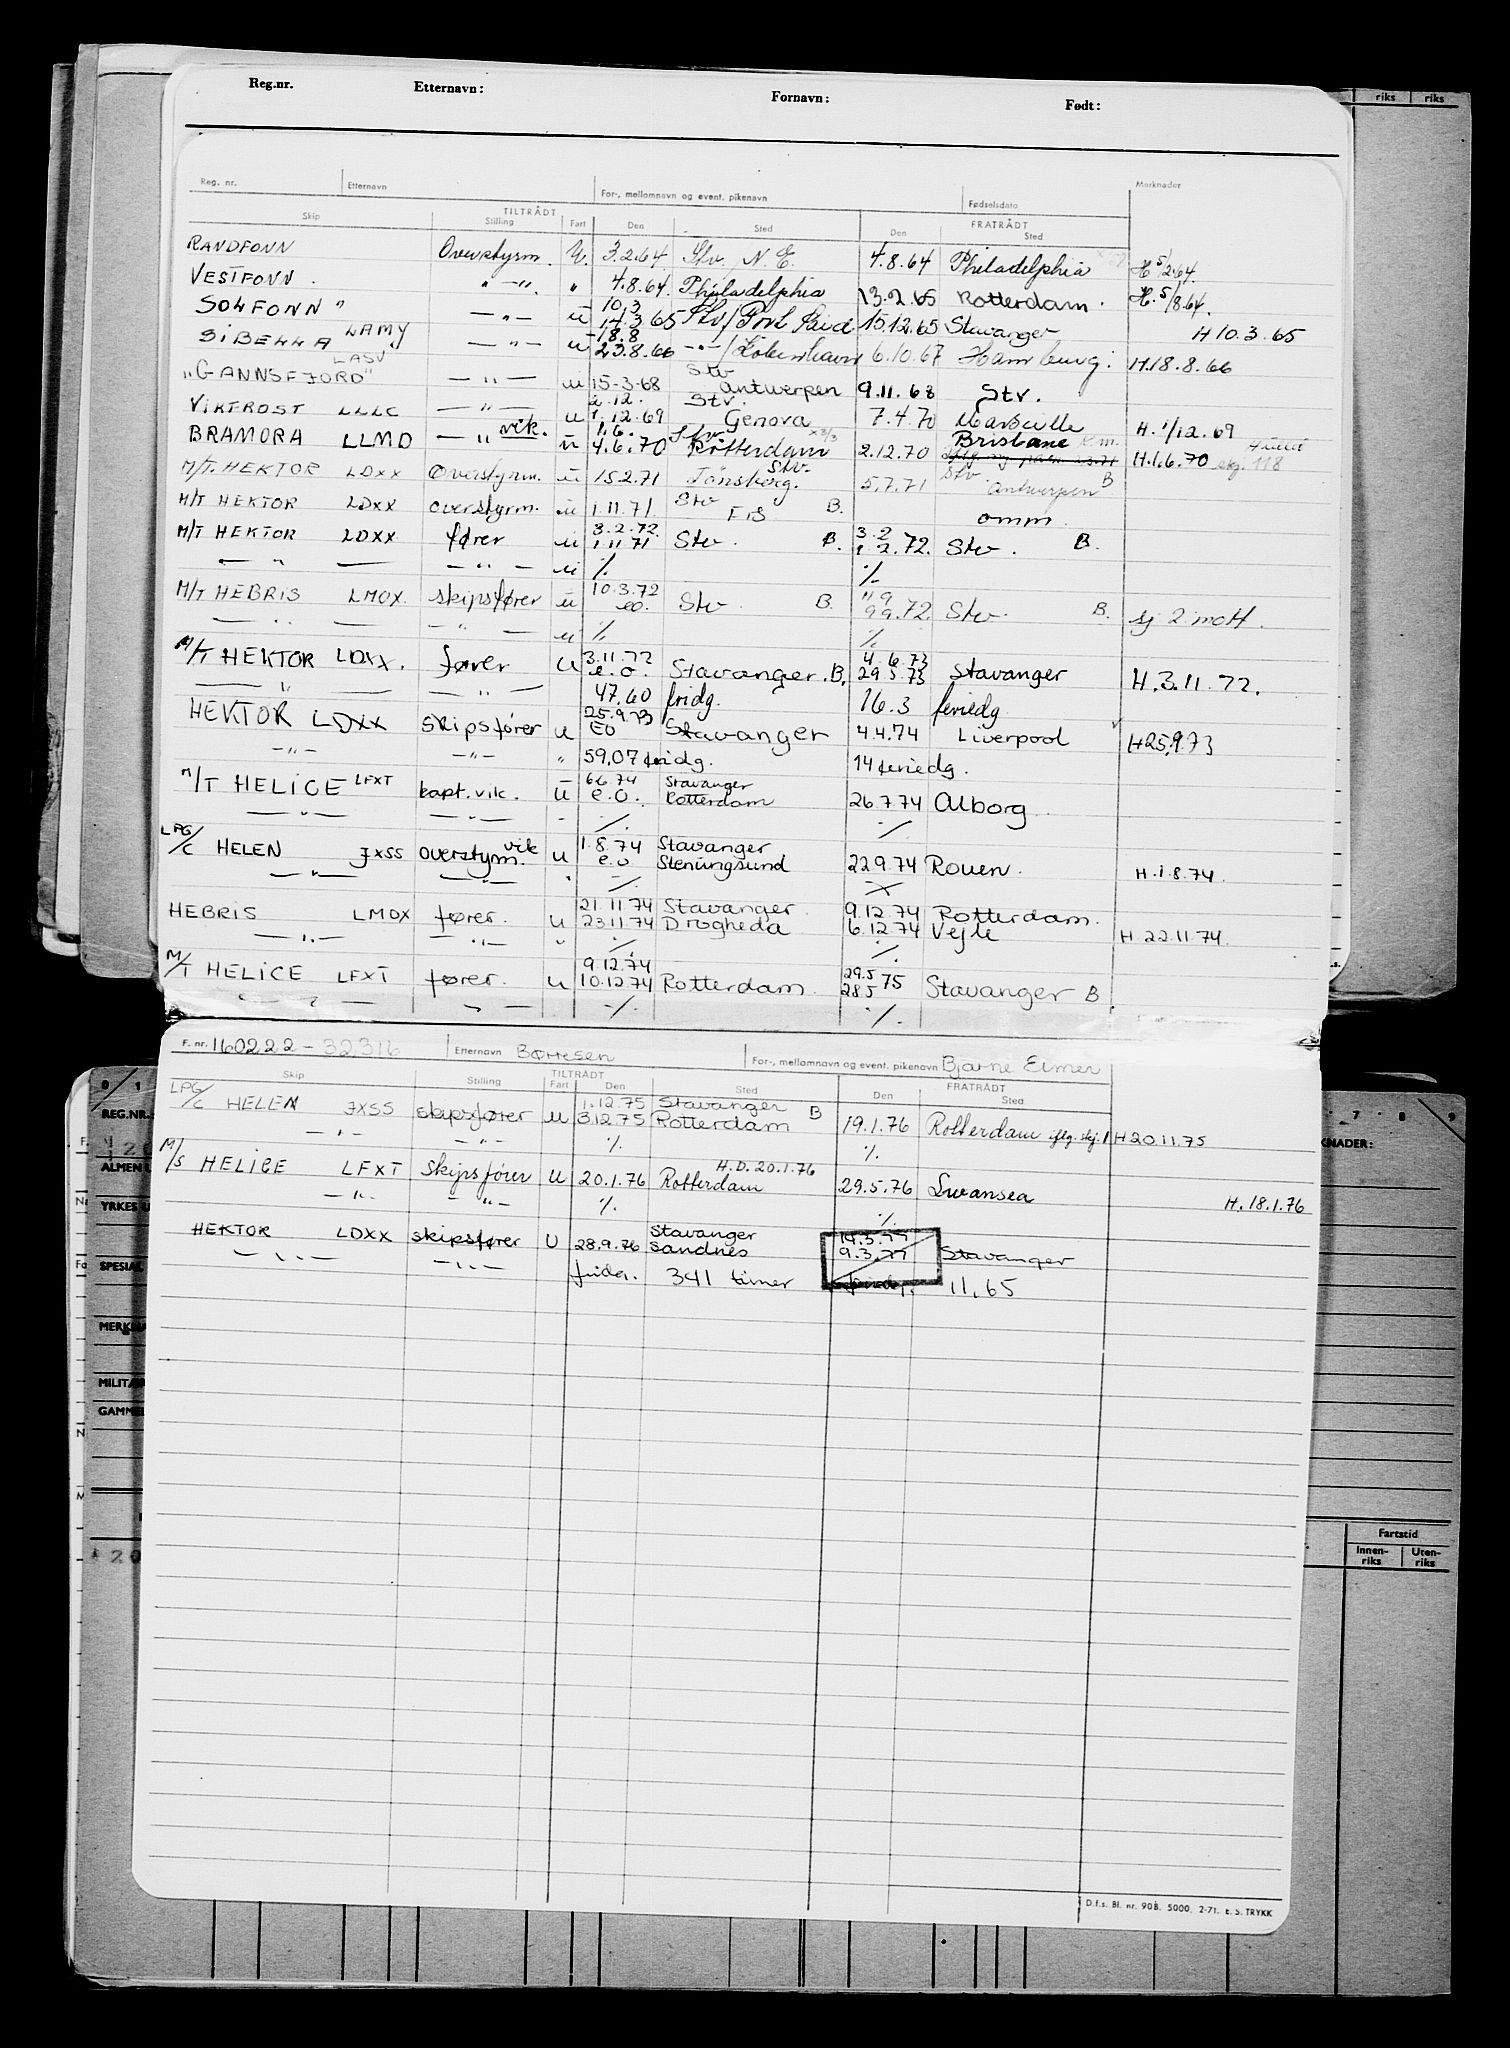 Reg.nr. Etternavn: Fornavn: Født: riks riks
Reg. nr. Etternavn For-, mellomnavn og event. pikenavn Fødselsdato Merknader
TILTRÅDT FRATRÅDT
Skip Stilling Fart Den Sted Den Sted
RANDFONN Overstyrm. U. 3.2.64 Stv. N.E. 4.8.64 Philadelphia H 5/2.64
VESTFONN. " -"- " 4.8.64. Philadelphia 13.2.65 Rotterdam. H. 5/8.64.
10.3
SOLFONN" -"- u 14.3.65 Stv/Port Said 15.12.65 Stavanger H 10.3.65
18.8
SIBELLA LAMY -"- u 23.8.66 -"-/København 6.10.67 Hamburg. H.18.8.66
LASV Stv
"GANNSFJORD" -"- u 15-3-68 Antwerpen 9.11.68 Stv.
2.12. Stv.
VIKFROST LLLC -"- u 1.12.69 Genova 7.4.70 Marseille H. 1/12.69
vik. 1.6. Stv. x3/3 Brisbane
BRAMORA LLMD -"- u 4.6.70 Rotterdam 2.12.70 H.1.6.70 118
Stv. Stv. B
M/T. HEKTOR LDXX Overstyrm. u 15.2.71 Tönsberg. 5.7.71 Antwerpen
Stv B.
M/T HEKTOR LDXX overstyrm. u 1.11.71 FIS omm.
3.2.72. 3.2
M/T HEKTOR LDXX fører u 1.11.71 Stv. B. 1.2.72. Stv. B.
-"- -"- u ./. ./.
10.3.72 11 9
M/T HEBRIS LMOX. skipsfører u eo. Stv. B. 9 9.72. Stv. B. sj 2 mott.
-"- -"- u ./. ./.
3.11.72 4.6.73
M/T HEKTOR LDXX. fører u e.o. Stavanger. B. 29.5.73 Stavanger H.3.11.72.
-"- -"- 47.60 fridg. 16.3 feriedg
25.9.73
HEKTOR LDXX skipsfører u EO Stavanger 4.4.74 Liverpool H 25.9.73
-"- -"- " 59,07 fridg. 14 feriedg.
6.6.74 Stavanger
M/T HELICE LFXT kapt.vik. u e.o. Rotterdam 26.7.74 Alborg
-"- -"- - ./. ./.
1.8.74 Stavanger
LPG/C HELEN JXSS overstyrm. vik u e.o Stenungsund 22.9.74 Rouen. H.1.8.74.
-"- -"- " ./. ./.
21.11.74 Stavanger 9.12.74 Rotterdam.
HEBRIS LMOX fører. u 23.11.74 Drogheda 6.12.74 Vejle H 22.11.74.
-"- -"- " ./. ./.
9.12.74 29.5
M/T HELICE LFXT fører. u 10.12.74 Rotterdam. 28.5 75 Stavanger B
-"- -"- ./. ./.
F. nr. 160222-32316 Etternavn Børresen For-, mellomnavn og event. pikenavn Bjarne Elmer
TILTRÅDT FRATRÅDT
Skip Stilling Fart Den Sted Den Sted
1.12.75 Stavanger
LPG/C HELEN JXSS skipsfører u 3.12.75 Rotterdam B 19.1.76 Rotterdam iflg. skj.1 H 20.11.75
-"- -"- ./. ./.
H.D. 20.1.76
M/S HELICE LFXT Skipsfører U 20.1.76 Rotterdam 29.5.76 Swansea H. 18.1.76
-"- -"- ./. ./.
Stavanger 14.3.77
HEKTOR LDXX skipsfører U 28.9.76 Sandnes 9.3.77 Stavanger
-"- -"- fridg. 341 timer 11,65
0 1 7 8 9
REG.NR. KNADER:
ALMEN U
YRKES U
SPESIAL
MERKNA
MILITÆR
GAMMEL
Fartstid
Innen-riks Uten-riks
D.f.s. Bl. nr. 90B. 5000. 2-71. E. S. TRYKK